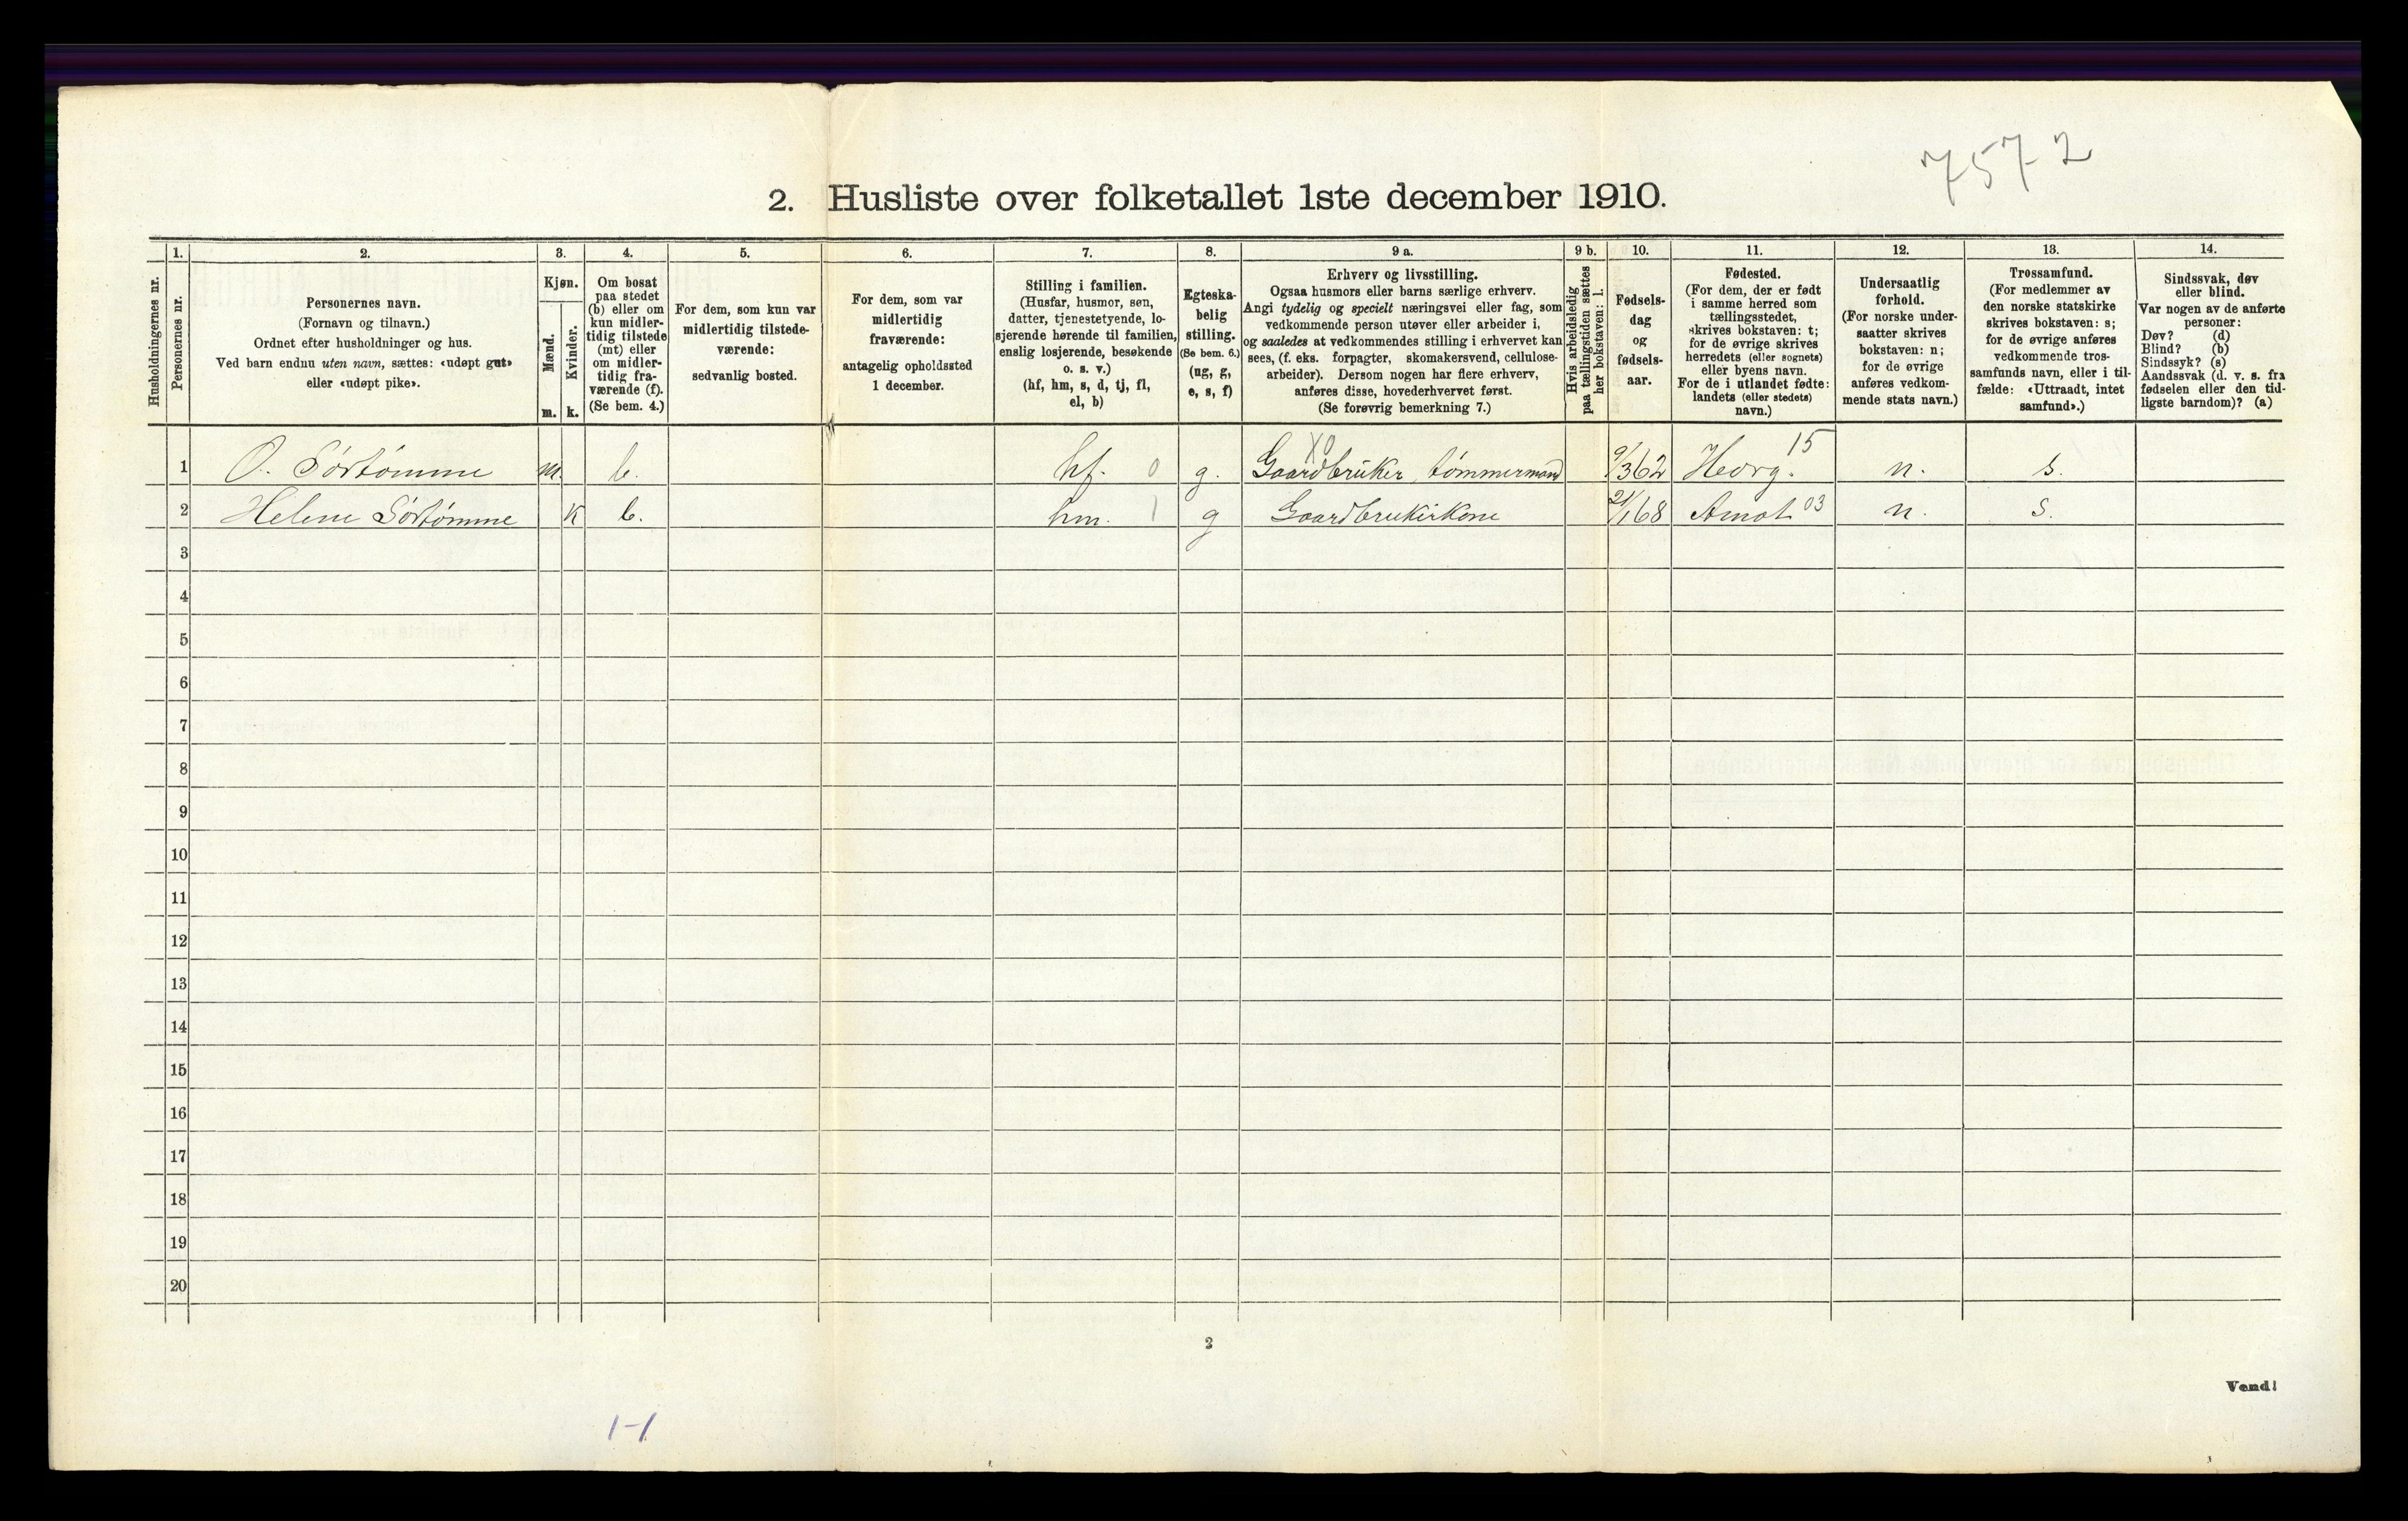 7572
2. Husliste over folketallet 1ste december 1910.
Husholdningernes nr.
1.
Personernes nr.
2.
Personernes navn.
(Fornavn og tilnavn.)
Ordnet efter husholdninger og hus.
Ved barn endnu uten navn, sættes: «udøpt gut»
eller «udøpt pike».
3.
Kjøn.
Mænd.
m.
Kvinder.
k.
4.
Om bosat
paa stedet
(b) eller om
kun midler-
tidig tilstede
(mt) eller
om midler-
tidig fra-
værende (f).
(Se bem. 4.)
5.
For dem, som kun var
midlertidig tilstede-
værende:
sedvanlig bosted.
6.
For dem, som var
midlertidig
fraværende:
antagelig opholdssted
1 december.
7.
Stilling i familien.
(Husfar, husmor, søn,
datter, tjenestetyende, lo-
sjerende hørende til familien,
enslig losjerende, besøkende
o. s. v.)
(hf, hm, s, d, tj, fl,
el, b)
8.
Egteska-
belig
stilling.
(Se bem. 6.)
(ug, g,
e, s, f)
9 a.
Erhverv og livsstilling.
Ogsaa husmors eller barns særlige erhverv.
Angi tydelig og specielt næringsvei eller fag, som
vedkommende person utøver eller arbeider i,
og saaledes at vedkommendes stilling i erhvervet kan
sees, (f. eks. forpagter, skomakersvend, cellulose-
arbeider). Dersom nogen har flere erhverv,
anføres disse, hovederhvervet først.
(Se forøvrig bemerkning 7.)
9 b.
Hvis arbeidsledig
paa tællingstiden sættes
her bokstaven: l.
10.
Fødsels-
dag
og
fødsels-
aar.
11.
Fødested.
(For dem, der er født
i samme herred som
tællingsstedet,
skrives bokstaven: t;
for de øvrige skrives
herredets (eller sognets)
eller byens navn.
For de i utlandet fødte:
landets (eller stedets)
navn.)
12.
Undersaatlig
forhold.
(For norske under-
saatter skrives
bokstaven: n;
for de øvrige
anføres vedkom-
mende stats navn.)
13.
Trossamfund.
(For medlemmer av
den norske statskirke
skrives bokstaven: s;
for de øvrige anføres
vedkommende tros-
samfunds navn, eller i til-
fælde: «Uttraadt, intet
samfund».)
14.
Sindssvak, døv
eller blind.
Var nogen av de anførte
personer:
Døv? (d)
Blind? (b)
Sindssyk? (s)
Aandssvak (d. v. s. fra
fødselen eller den tid-
ligste barndom)? (a)
1 O. Sørtømme m. b. hf. 0 g. X0 Gaardbruker, tømmermand 9/3 62 Horg. 15 n. s.
2 Helene Sørtømme k b. hm. 1 g Gaardbrukirkone 21/1 68 Amot 03 n. s.
3
4
5
6
7
8
9
10
11
12
13
14
15
16
17
18
19
20
2
Vend!
1-1